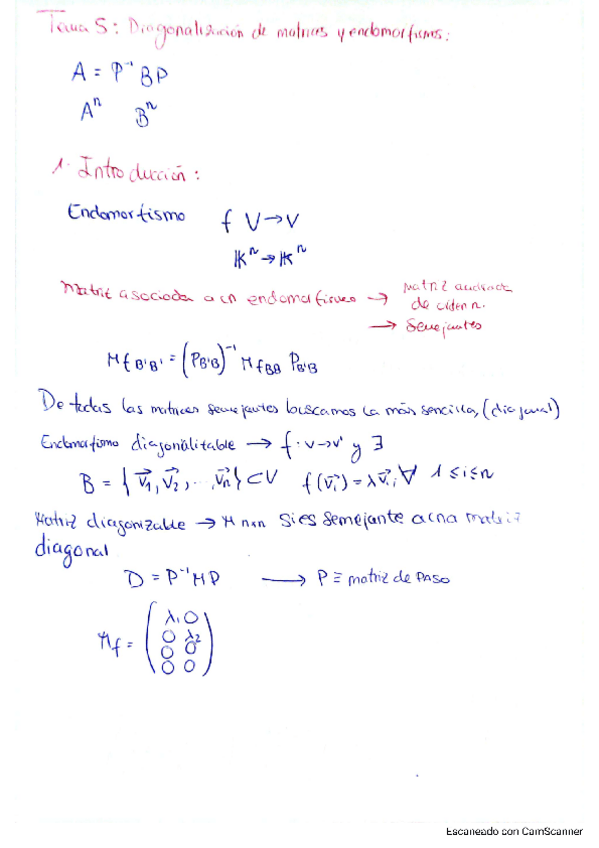 Tema 5: Diagonalización de matrices y endomorfismos:
A = P⁻¹ B P
Aⁿ Bⁿ
1. Introducción:
Endomorfismo f V → V
𝕂ⁿ → 𝕂ⁿ
Matriz asociada a un endomorfismo → Matriz cuadrada
de orden n.
→ Semejantes
M f B'B' = (P B'B)⁻¹ M f BB P B'B
De todas las matrices semejantes buscamos la más sencilla, (diagonal)
Endomorfismo diagonalitable → f: V → V y ∃
B = { v⃗1, v⃗2, ..., v⃗n } ⊂ V f(v⃗i) = λ v⃗i, ∀ 1 ≤ i ≤ n
Matriz diagonizable → M nxn Si es semejante a una matriz
diagonal
D = P⁻¹ M P → P ≡ matriz de paso
M f = ( λ1 0
0 λ2
0 0
0 0 )
Escaneado con CamScanner